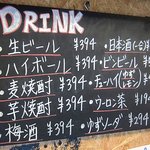 DRINK
・生ビール ¥394
・ハイボール ¥394
・麦焼酎 ¥394
・芋焼酎 ¥394
・梅酒 ¥394
・日本酒(一合) ¥3
・ビンビール
・チューハイ(ゆず レモン)
・ウーロン茶 ¥19
・ゆずソーダ ¥294